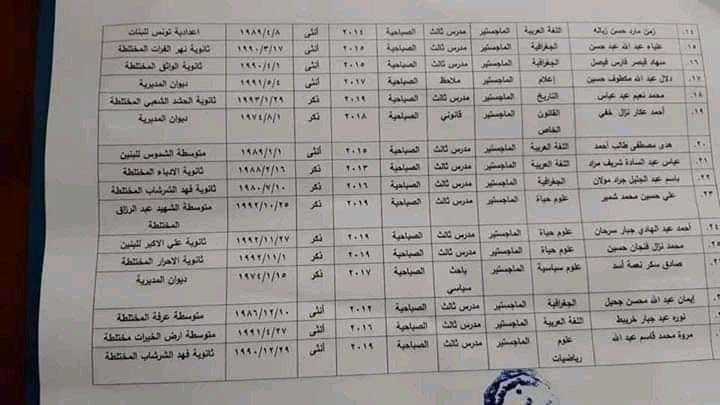 ١٤. زمن مارد حسن زباله اللغة العربية الماجستير مدرس ثالث الصباحية ٢٠١٤ أنثى ١٩٨٩/٤/٨ اعدادية تونس للبنات
١٥. علياء عبد الله عبد حسن الجغرافية الماجستير مدرس ثالث الصباحية ٢٠١٥ أنثى ١٩٩٠/٣/١٧ ثانوية نهر الفرات المختلطة
١٦. سهاد قيصر فارس فيصل الجغرافية الماجستير مدرس ثالث الصباحية ٢٠١٥ أنثى ١٩٩٠/٤/١ ثانوية الواثق المختلطة
١٧. دلال عبد الله مكطوف حسين إعلام الماجستير ملاحظ الصباحية ٢٠١٧ أنثى ١٩٩١/٥/٤ ديوان المديرية
١٨. محمد نعيم عبد عباس التاريخ الماجستير مدرس ثالث الصباحية ٢٠١٩ ذكر ١٩٩٣/١/٢٩ ثانوية الحشد الشعبي المختلطة
١٩. أحمد عكار نزال خفي القانون الماجستير قانوني الصباحية ٢٠١٨ ذكر ١٩٧٤/٨/١ ديوان المديرية
الخاص
٢٠. هدى مصطفى طالب أحمد اللغة العربية الماجستير مدرس ثالث الصباحية ٢٠١٥ أنثى ١٩٨٩/١/١ متوسطة الشموس للبنين
٢١. عباس عبد السادة شريف مراد اللغة العربية الماجستير مدرس ثالث الصباحية ٢٠١٣ ذكر ١٩٨٨/٢/١٦ ثانوية الادباء المختلطة
٢٢. باسم عبد الجليل جراد مولان الجغرافية الماجستير مدرس ثالث الصباحية ٢٠١٦ ذكر ١٩٨٠/٧/١٠ ثانوية فهد الشرشاب المختلطة
٢٣ علي حسين محمد شمير علوم حياة الماجستير مدرس ثالث الصباحية ٢٠١٩ ذكر ١٩٩٢/١٠/٢٥ متوسطة الشهيد عبد الرزاق
المختلطة
٢٤ أحمد عبد الهادي جبار سرحان علوم حياة الماجستير مدرس ثالث الصباحية ٢٠١٩ ذكر ١٩٩٢/١١/٢٧ ثانوية علي الاكبر للبنين
محمد نزال فنجان حسين علوم حياة الماجستير مدرس ثالث الصباحية ٢٠١٩ ذكر ١٩٩٢/١١/١ ثانوية الاحرار المختلطة
صادق سكر نعمة أسد علوم سياسية الماجستير باحث الصباحية ٢٠١٧ ذكر ١٩٧٤/١/١٥ ديوان المديرية
سياسي
إيمان عبد الله محسن جحيل الجغرافية الماجستير مدرس ثالث الصباحية ٢٠١٢ أنثى ١٩٨٦/١٢/١٠ متوسطة عرفة المختلطة
نوره عبد جبار خريبط اللغة العربية الماجستير مدرس ثالث الصباحية ٢٠١٦ أنثى ١٩٩١/٤/٢٧ متوسطة ارض الخيرات المختلطة
مروة محمد قاسم عبد الله علوم الماجستير مدرس ثالث الصباحية ٢٠١٩ أنثى ١٩٩٠/١٢/٢٩ ثانوية فهد الشرشاب المختلطة
رياضيات